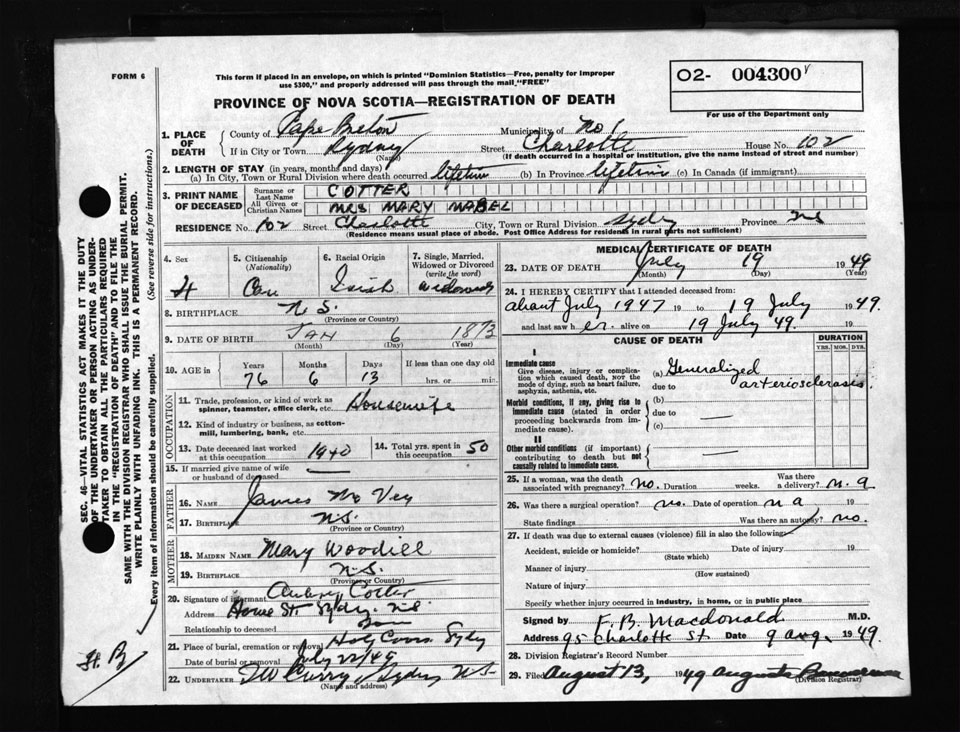 FORM 6
This form if placed in an envelope, on which is printed "Dominion Statistics—Free, penalty for improper
use $300," and properly addressed will pass through the mail "FREE"
O2- 004300
For use of the Department only
PROVINCE OF NOVA SCOTIA—REGISTRATION OF DEATH
1. PLACE OF DEATH
County of Cape Breton Municipality of No 1
If in City or Town Sydney (Name) Street Charlotte House No. 102
(If death occurred in a hospital or institution, give the name instead of street and number)
2. LENGTH OF STAY (in years, months and days)
(a) In City, Town or Rural Division where death occurred lifetime (b) In Province lifetime (c) In Canada (if immigrant)
3. PRINT NAME OF DECEASED
Surname or Last Name COTTER
All Given or Christian Names MRS MARY MABEL
RESIDENCE No. 102 Street Charlotte City, Town or Rural Division Sydney Province NS
(Residence means usual place of abode. Post Office Address for residents in rural parts not sufficient)
4. Sex
5. Citizenship (Nationality) Can
6. Racial Origin Irish
7. Single, Married, Widowed or Divorced (write the word) widowed
8. BIRTHPLACE N.S.
(Province or Country)
9. DATE OF BIRTH JAN 6 1873
(Month) (Day) (Year)
10. AGE in Years Months Days If less than one day old
76 6 13 hrs. or min.
OCCUPATION
11. Trade, profession, or kind of work as spinner, teamster, office clerk, etc. Housewife
12. Kind of industry or business, as cotton-mill, lumbering, bank, etc.
13. Date deceased last worked at this occupation 1940
14. Total yrs. spent in this occupation 50
15. If married give name of wife or husband of deceased
FATHER
16. NAME James Mc Vey
17. BIRTHPLACE N.S.
(Province or Country)
MOTHER
18. MAIDEN NAME Mary Woodill
19. BIRTHPLACE N.S.
(Province or Country)
20. Signature of informant Aubrey Cotter
Address Howe St. Sydney. N.S.
Relationship to deceased Son
21. Place of burial, cremation or removal Holy Cross Sydney
Date of burial or removal July 22/49
22. UNDERTAKER TW Curry, Sydney N.S.
(Name and address)
MEDICAL CERTIFICATE OF DEATH
23. DATE OF DEATH July 19 1949
(Month) (Day) (Year)
24. I HEREBY CERTIFY that I attended deceased from:
about July 1947 19 to 19 July 1949.
and last saw her alive on 19 July 49. 19
CAUSE OF DEATH
DURATION
YRS. MOS. DYS.
I
Immediate cause
Give disease, injury or complication which caused death, Not the mode of dying, such as heart failure, asphyxia, asthenia, etc.
(a) Generalized
due to arteriosclerosis
Morbid conditions, if any, giving rise to immediate cause (stated in order proceeding backwards from immediate cause).
(b)
due to —
(c)
II
Other morbid conditions (if important) contributing to death but not causally related to immediate cause.
—
25. If a woman, was the death associated with pregnancy? no. Duration weeks. Was there a delivery? n.a
26. Was there a surgical operation? no. Date of operation n a 19
State findings Was there an autopsy? no.
27. If death was due to external causes (violence) fill in also the following:
Accident, suicide or homicide? Date of injury 19
(State which)
Manner of injury
(How sustained)
Nature of injury
Specify whether injury occurred in industry, in home, or in public place
Signed by F. B. Macdonald M.D.
Address 95 Charlotte St Date 9 Aug. 1949.
28. Division Registrar's Record Number
29. Filed August 13, 1949
(Division Registrar)
SEC. 46—VITAL STATISTICS ACT MAKES IT THE DUTY
OF THE UNDERTAKER OR PERSON ACTING AS UNDER-
TAKER TO OBTAIN ALL THE PARTICULARS REQUIRED
IN THE "REGISTRATION OF DEATH" AND TO FILE THE
SAME WITH THE DIVISION REGISTRAR WHO SHALL ISSUE THE BURIAL PERMIT.
WRITE PLAINLY WITH UNFADING INK. THIS IS A PERMANENT RECORD.
Every item of information should be carefully supplied. (See reverse side for instructions.)